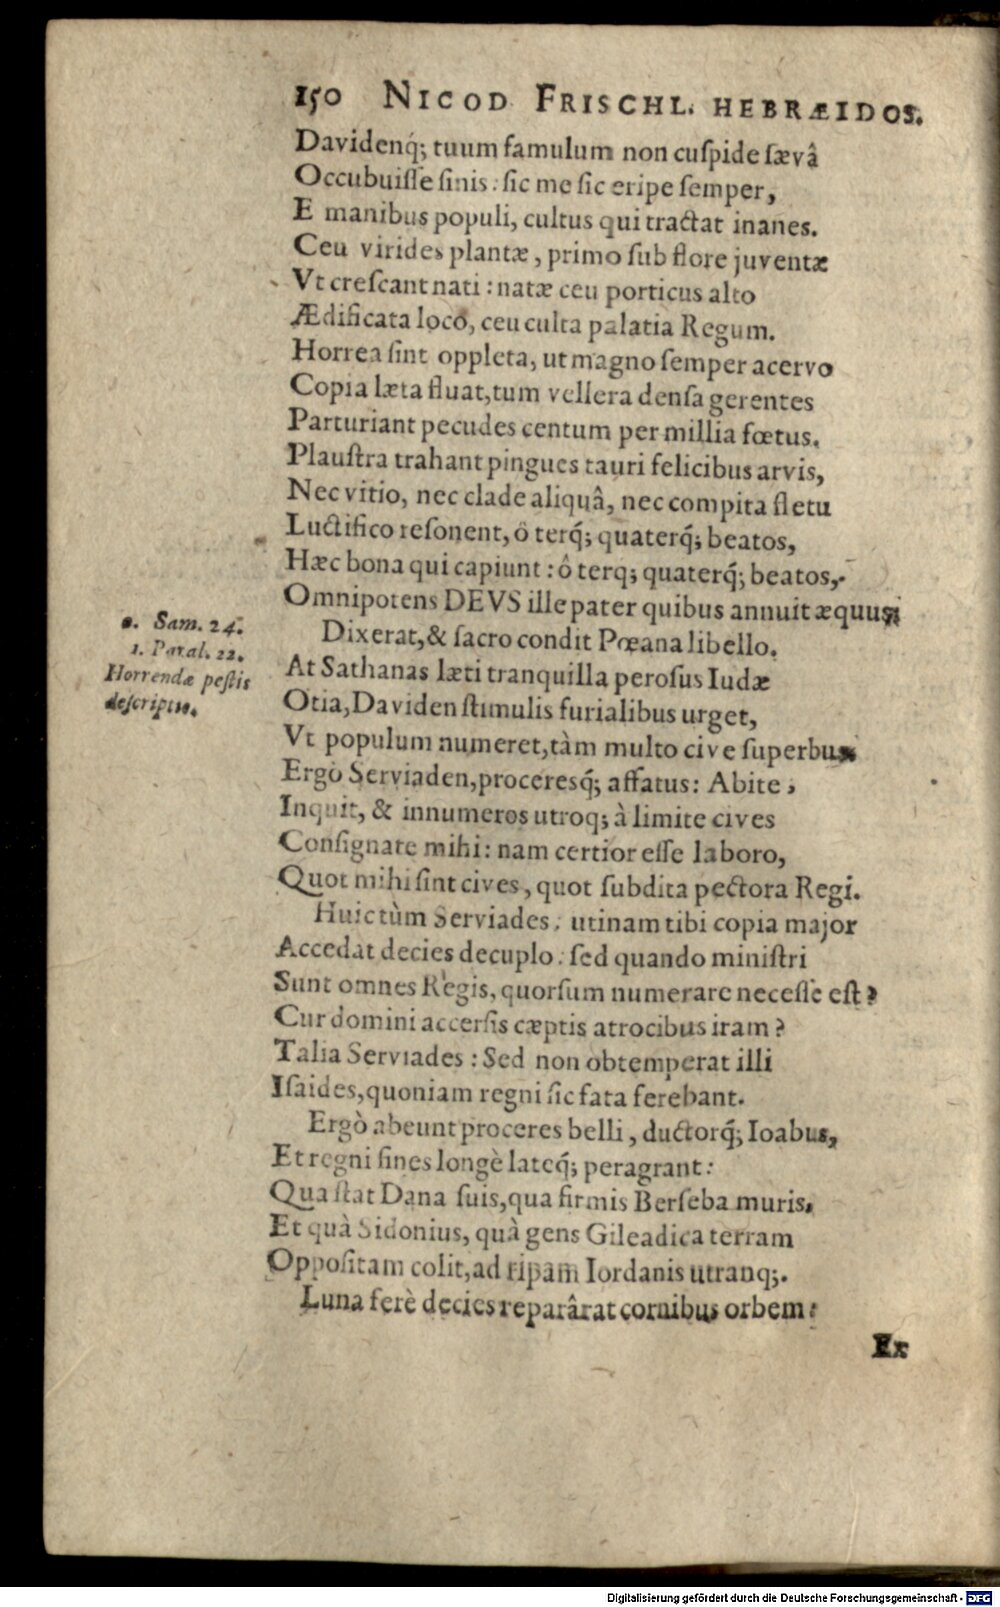 150 NICOD FRISCHL. HEBRÆIDOS.
Davidenq́; tuum famulum non cuſpide ſævâ
Occubuiſſe ſinis: ſic me ſic eripe ſemper,
E manibus populi, cultus qui tractat inanes.
Ceu virides plantæ, primo ſub flore juventæ
Vt creſcant nati: natæ ceu porticus alto
Ædificata loco, ceu culta palatia Regum.
Horrea ſint oppleta, ut magno ſemper acervo
Copia læta fluat, tum vellera denſa gerentes
Parturiant pecudes centum per millia fœtus.
Plauſtra trahant pingues tauri felicibus arvis,
Nec vitio, nec clade aliquâ, nec compita fletu
Luctifico reſonent, ô terq́; quaterq́; beatos,
Hæc bona qui capiunt: ô terq; quaterq́; beatos,
Omnipotens DEVS ille pater quibus annuit æquus;
Dixerat, & ſacro condit Pœana libello.
2. Sam. 24.
1. Paral. 22.
Horrendæ peſtis
deſcriptio.
At Sathanas læti tranquilla peroſus Iudæ
Otia, Daviden ſtimulis furialibus urget,
Vt populum numeret, tàm multo cive ſuperbus
Ergò Serviaden, proceresq́; affatus: Abite,
Inquit, & innumeros utroq; à limite cives
Conſignate mihi: nam certior eſſe laboro,
Quot mihi ſint cives, quot ſubdita pectora Regi.
Huic tùm Serviades: utinam tibi copia major
Accedat decies decuplo: ſed quando miniſtri
Sunt omnes Regis, quorſum numerare neceſſe eſt?
Cur domini accerſis cæptis atrocibus iram?
Talia Serviades: Sed non obtemperat illi
Iſaides, quoniam regni ſic fata ferebant.
Ergò abeunt proceres belli, ductorq́; Ioabus,
Et regni fines longè lateq́; peragrant:
Qua ſtat Dana ſuis, qua firmis Berſeba muris,
Et quà Sidonius, quà gens Gileadica terram
Oppoſitam colit, ad ripam Iordanis utranq;.
Luna ferè decies reparârat cornibus orbem:
Ex
Digitalisierung gefördert durch die Deutsche Forschungsgemeinschaft - DFG